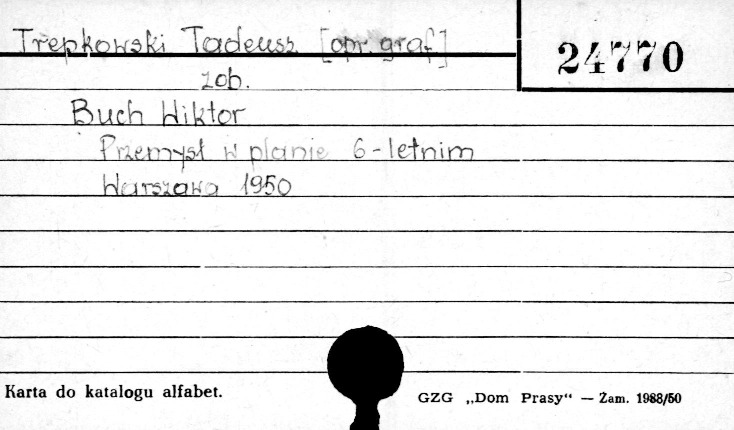 Trepkowski Tadeusz [opr. graf]
24770
zob.
Buch Wiktor
Przemysł w planie 6-letnim
Warszawa 1950
Karta do katalogu alfabet.
GZG „Dom Prasy“ — Zam. 1988/50